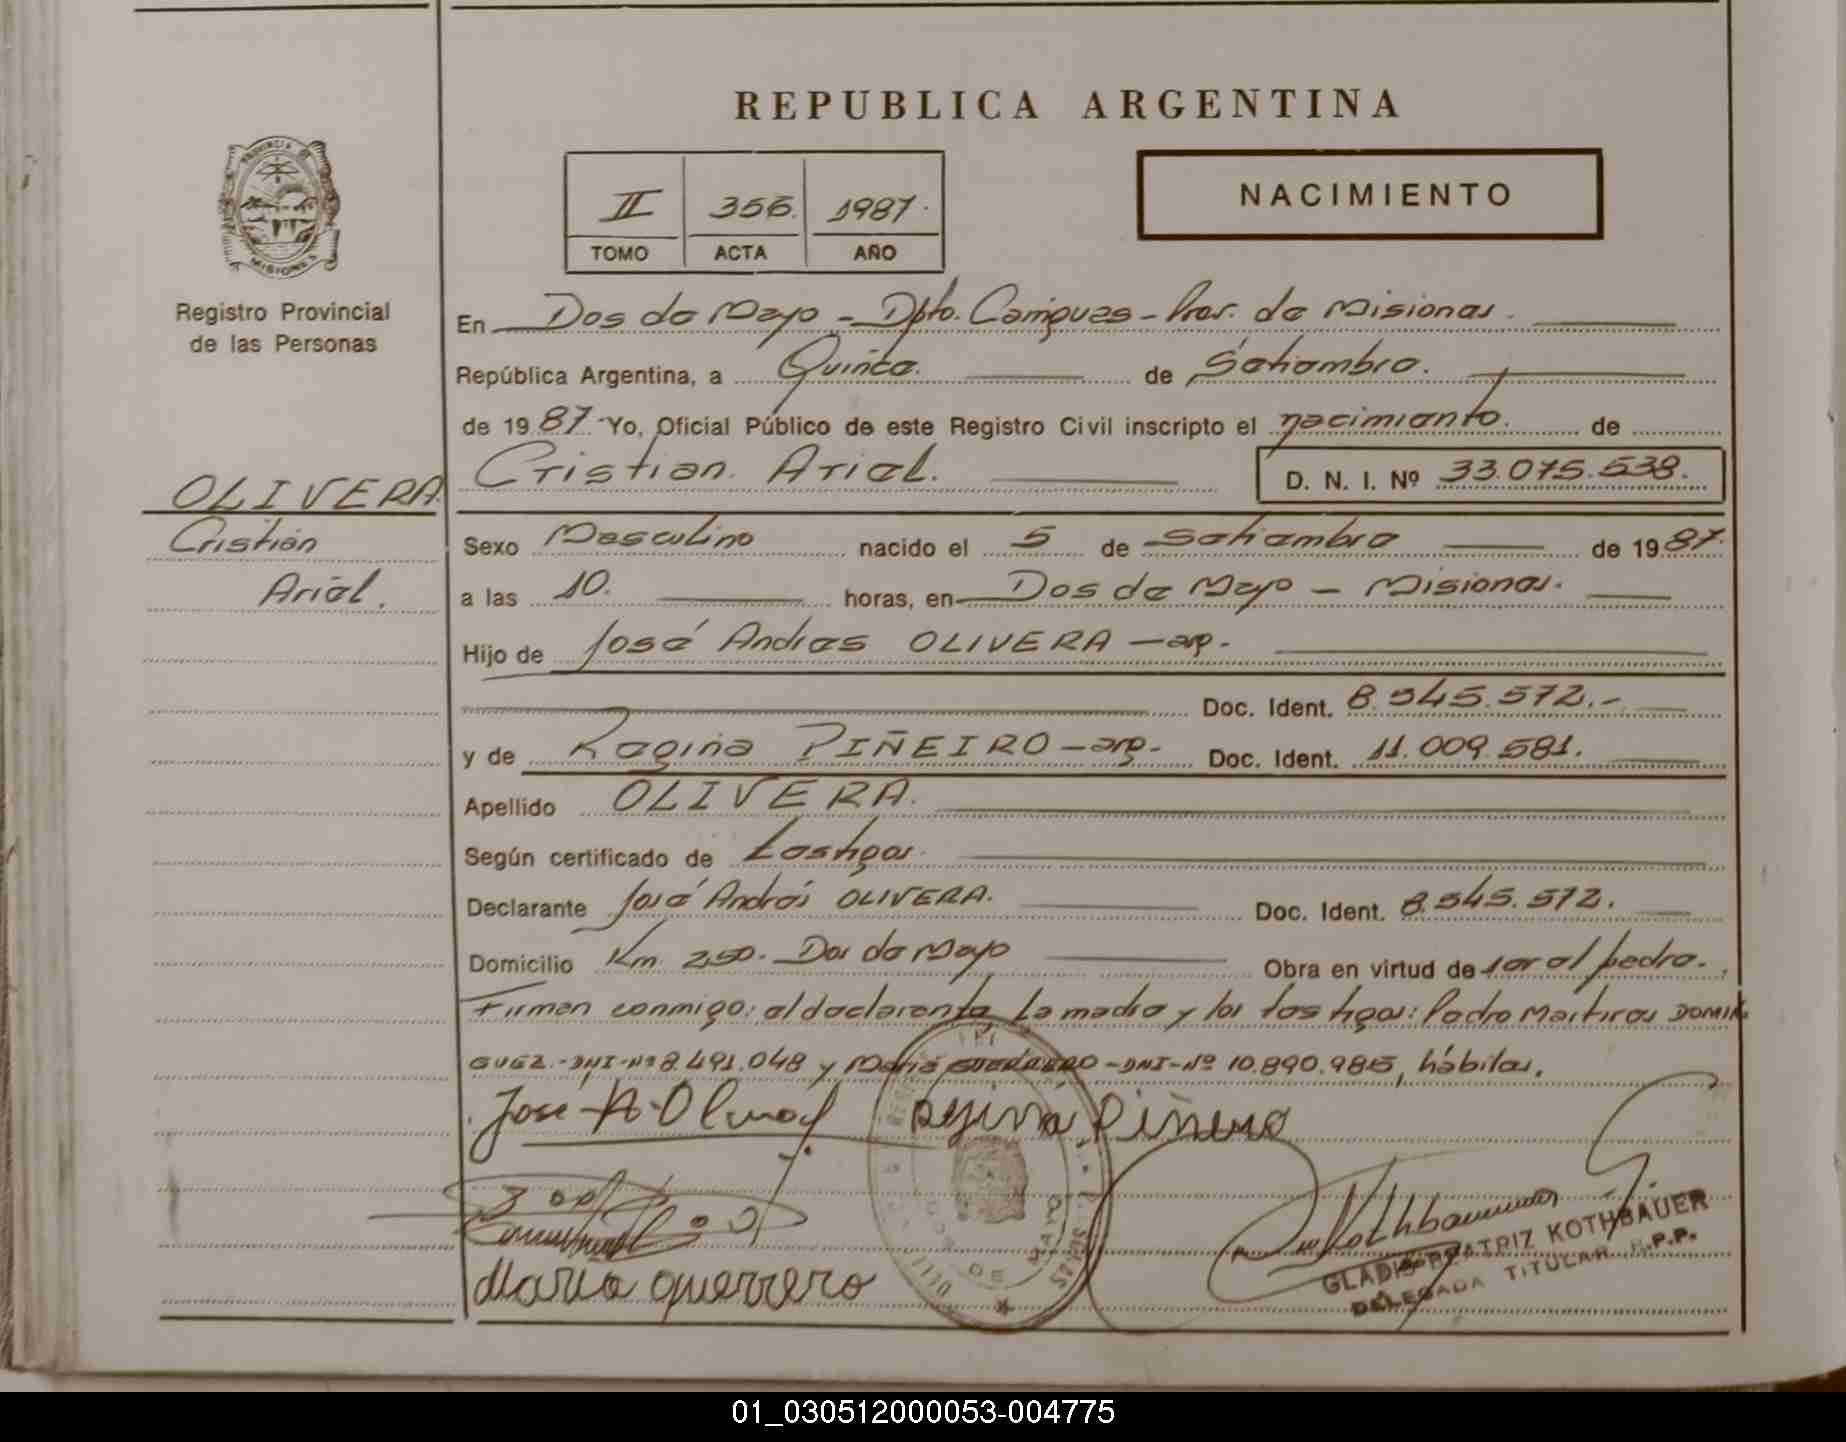 REPUBLICA ARGENTINA
II 356. 1987.
TOMO ACTA AÑO
NACIMIENTO
PROVINCIA DE
MISIONES
Registro Provincial
de las Personas
En Dos de Mayo - Dpto. Cainguas - Prov. de Misiones.
República Argentina, a Quince. de Setiembre.
de 1987. Yo, Oficial Público de este Registro Civil inscripto el nacimiento. de
Cristian. Ariel. D. N. I. Nº 33.075.538.
OLIVERA
Cristian
Ariel.
Sexo Masculino nacido el 5 de Setiembre de 1987.
a las 10. horas, en Dos de Mayo - Misiones.
Hijo de José Andres OLIVERA - arg.
Doc. Ident. 8.545.572.-
y de Regina PIÑEIRO - arg. Doc. Ident. 11.009.581.
Apellido OLIVERA.
Según certificado de testigos.
Declarante José Andrés OLIVERA. Doc. Ident. 8.545.572.
Domicilio Km. 250. Dos de Mayo Obra en virtud de ser el padre.
Firman conmigo: el declarante, la madre y los testigos: Pedro Martires DOMIN
GUEZ.-DNI-Nº 8.491.048 y Maria GUERRERO-DNI-Nº 10.890.985, hábiles.
José A. Regina Piñeiro
Kothbauer
GLADIS BEATRIZ KOTHBAUER
DELEGADA TITULAR R.P.P.
Maria guerrero
DOS DE MAYO
01_030512000053-004775